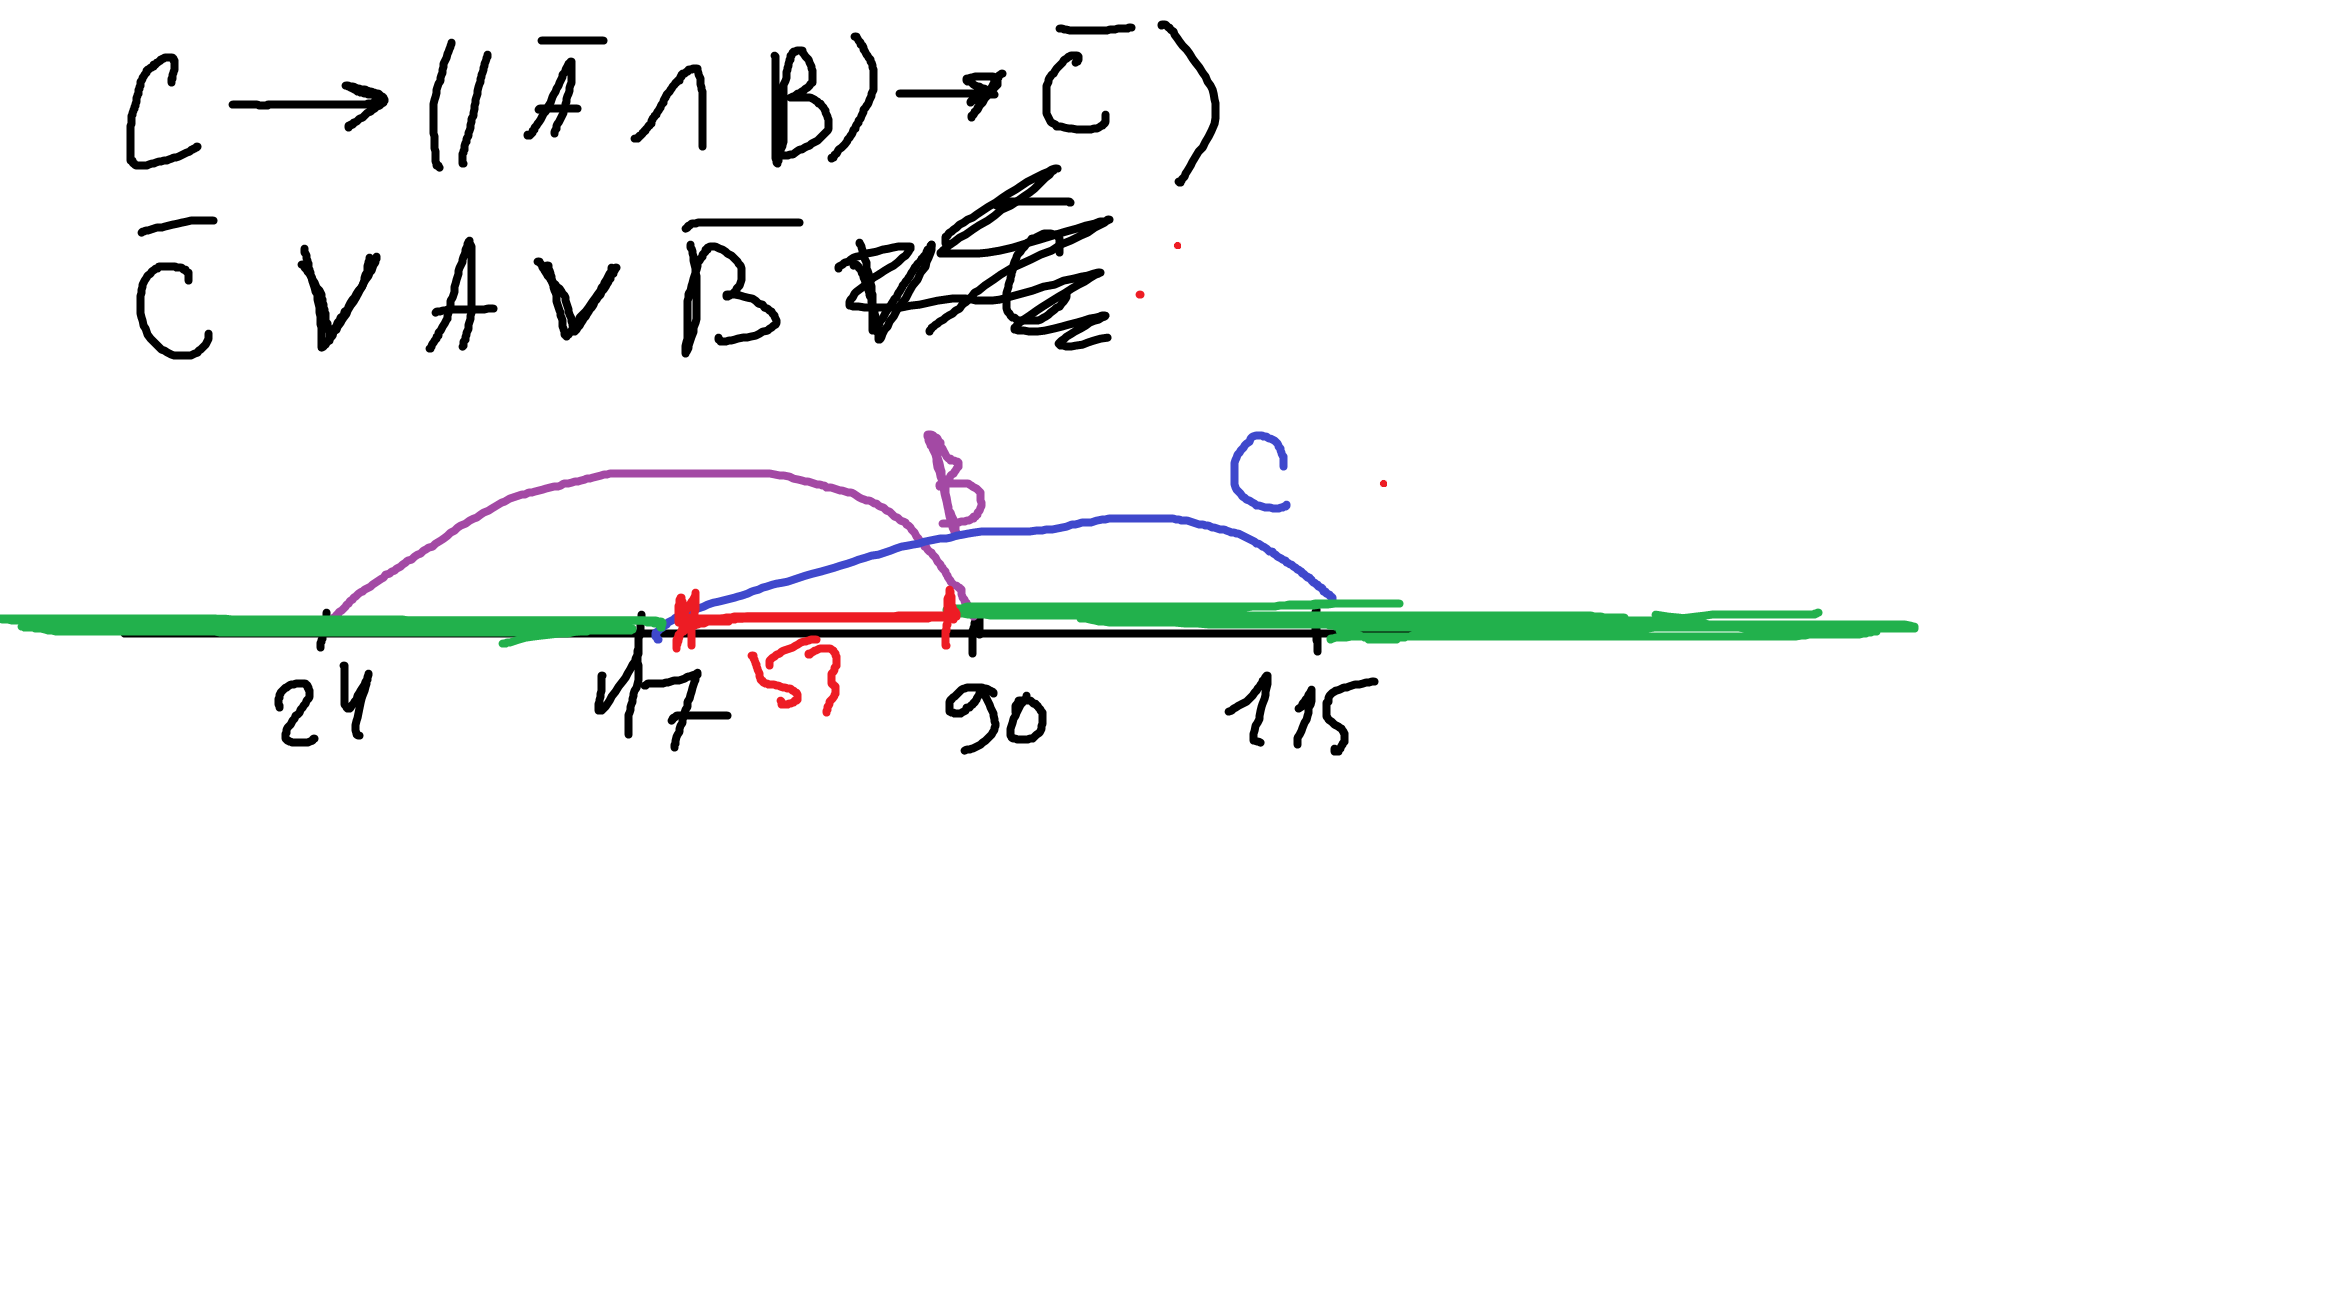 C → ((A̅ ∧ B) → C̅)
C̅ ∨ A ∨ B̅
B C
24 47 57 90 115